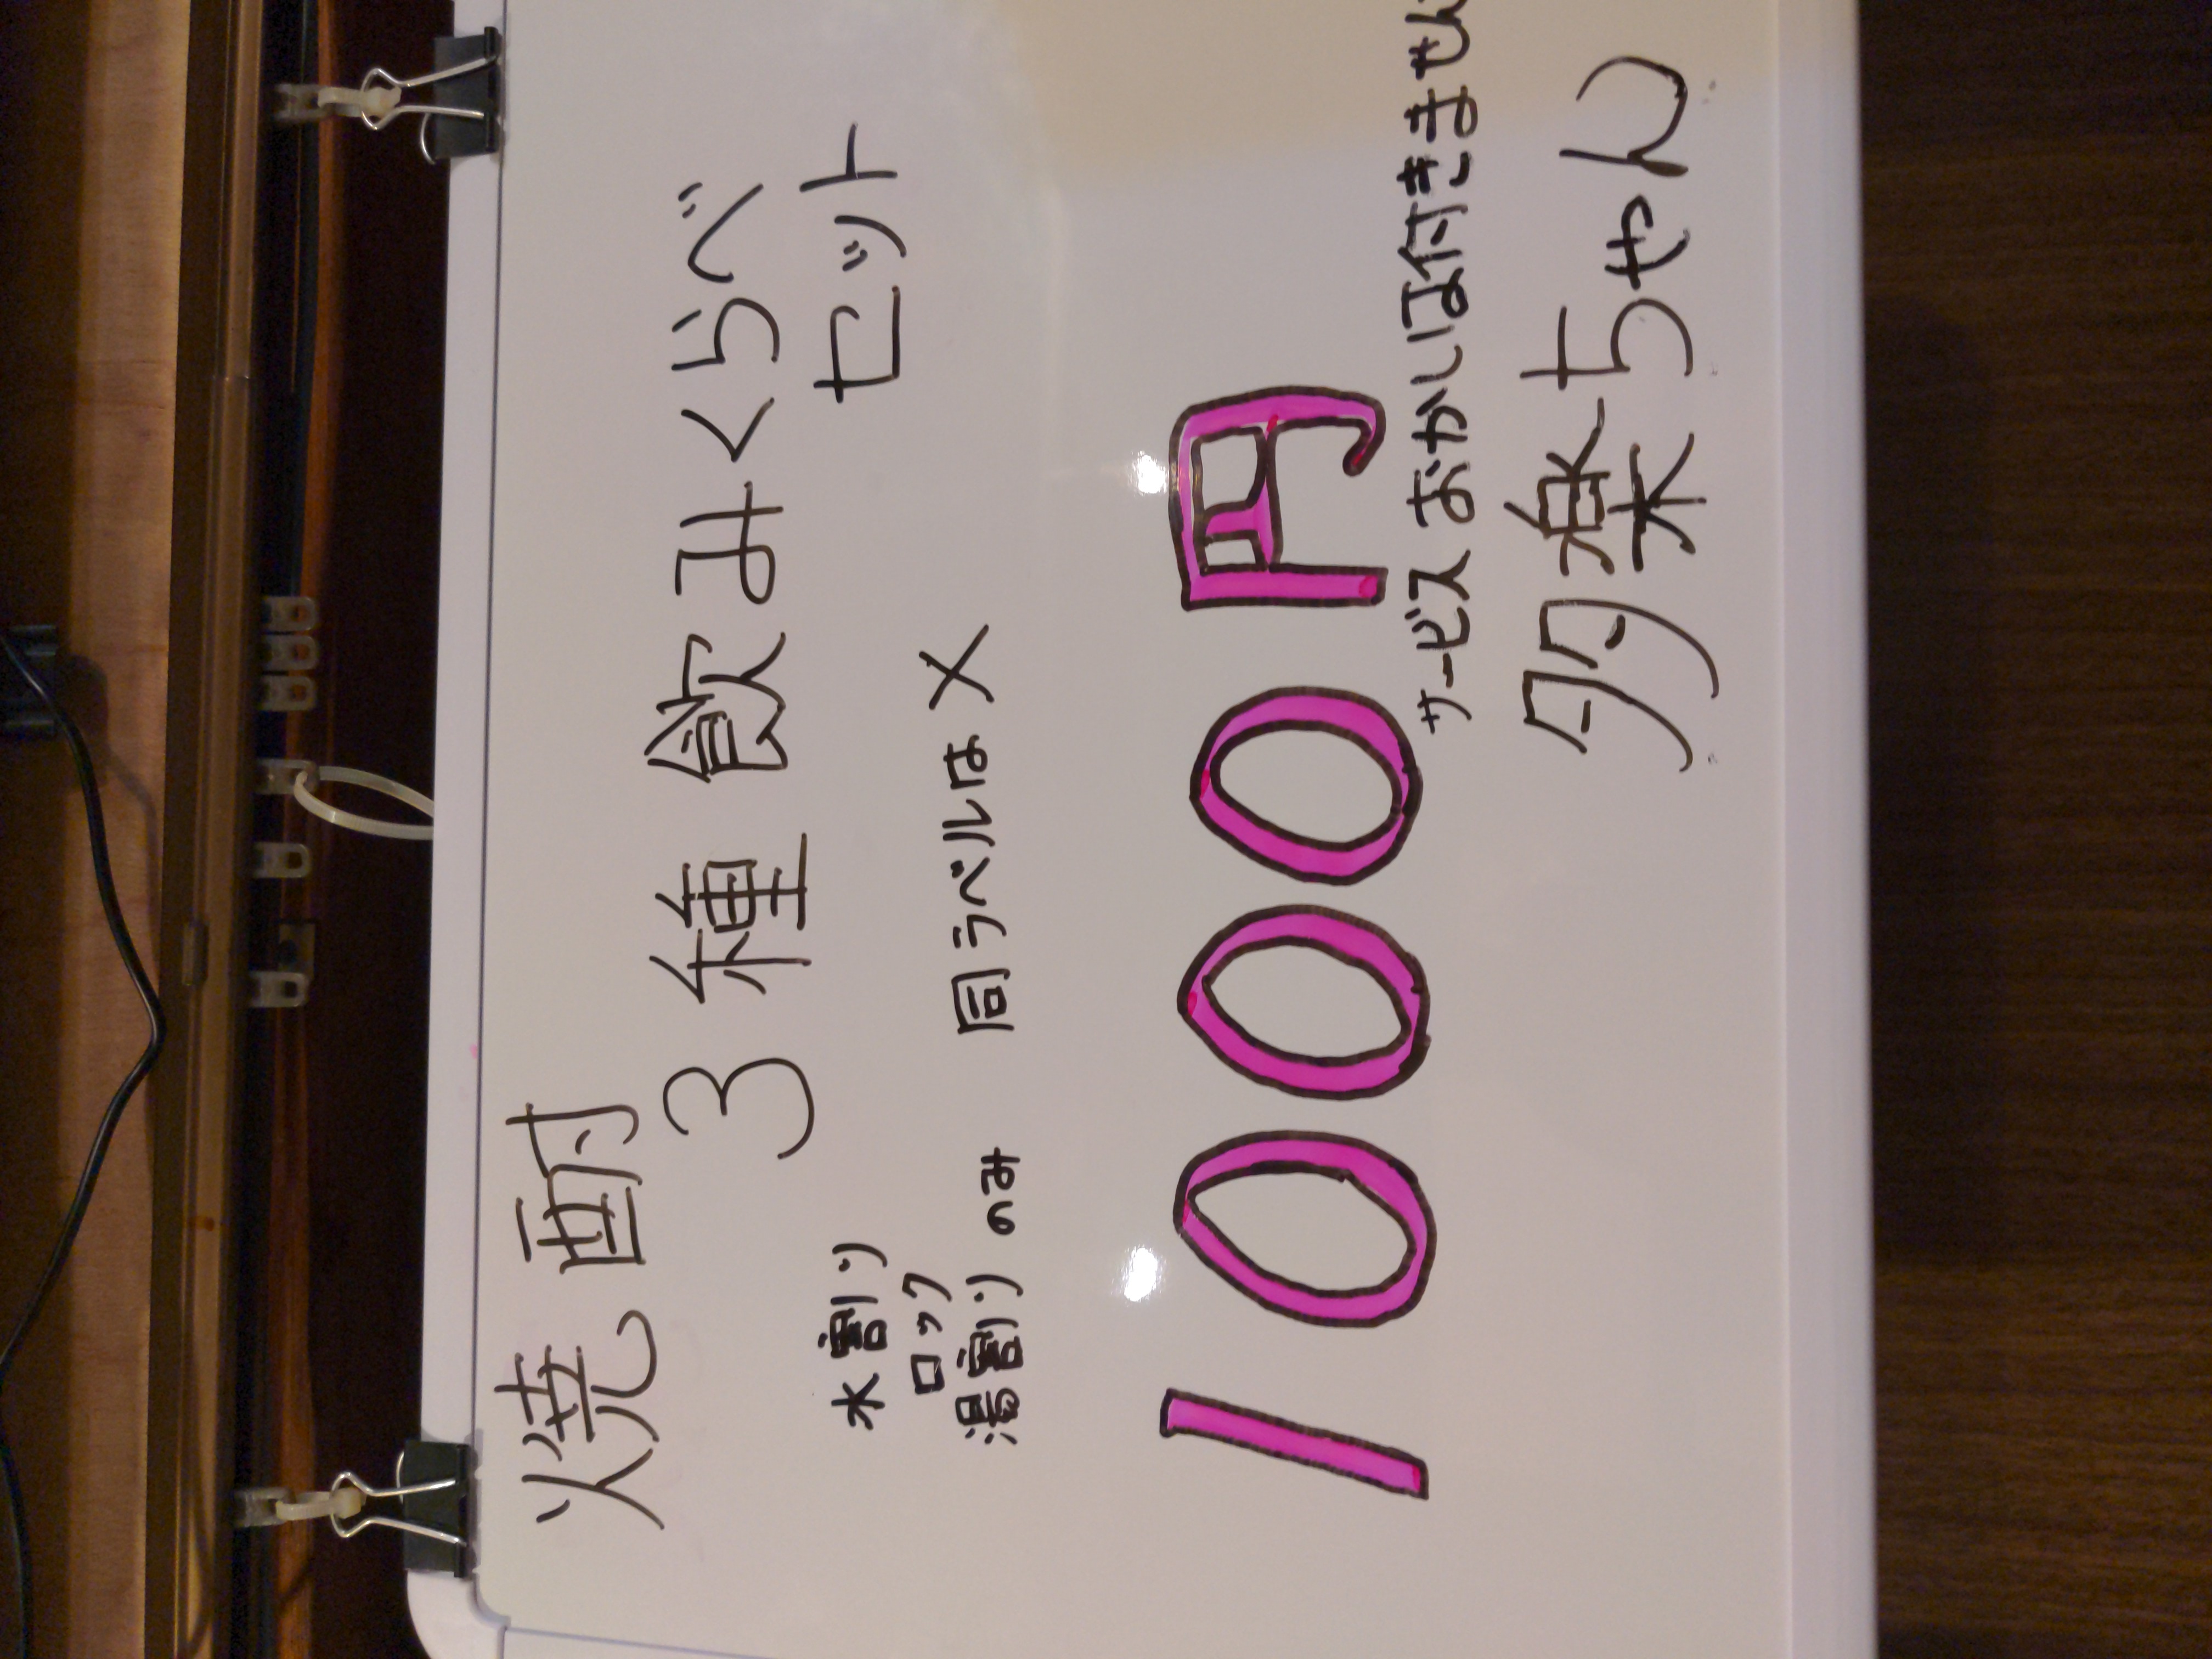 焼酎
3種 飲みくらべ
セット
水割り
ロック
湯割り のみ
同ラベルは ×
1000円
サービス おかしは付きません
夕楽ちゃん